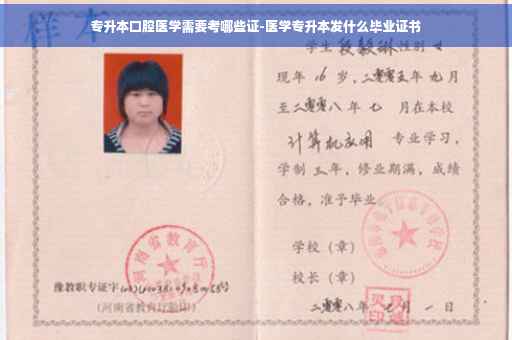 专升本口腔医学需要考哪些证-医学专升本发什么毕业证书
样本
学生 段毅琳 性别 女
现年 16 岁,二零零五年 九月
至二零零八年 七 月在本校
计算机应用 专业学习,
学制 三 年,修业期满,成绩
合格,准予毕业
学校(章)
校长(章)
二零零八年 七 月 一 日
河南省教育厅
豫教职专证字
(河南省教育厅验印)